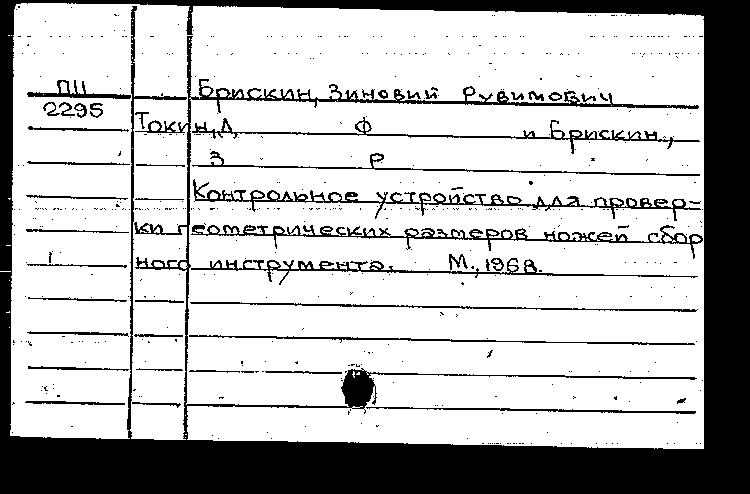 П11 Брискин, Зиновий Рувимович
2295
Токин, Д Ф и Брискин.,
З Р
Контрольное устройство для провер=
ки геометрических размеров ножей сбор
ного инструмента. М., 1968.